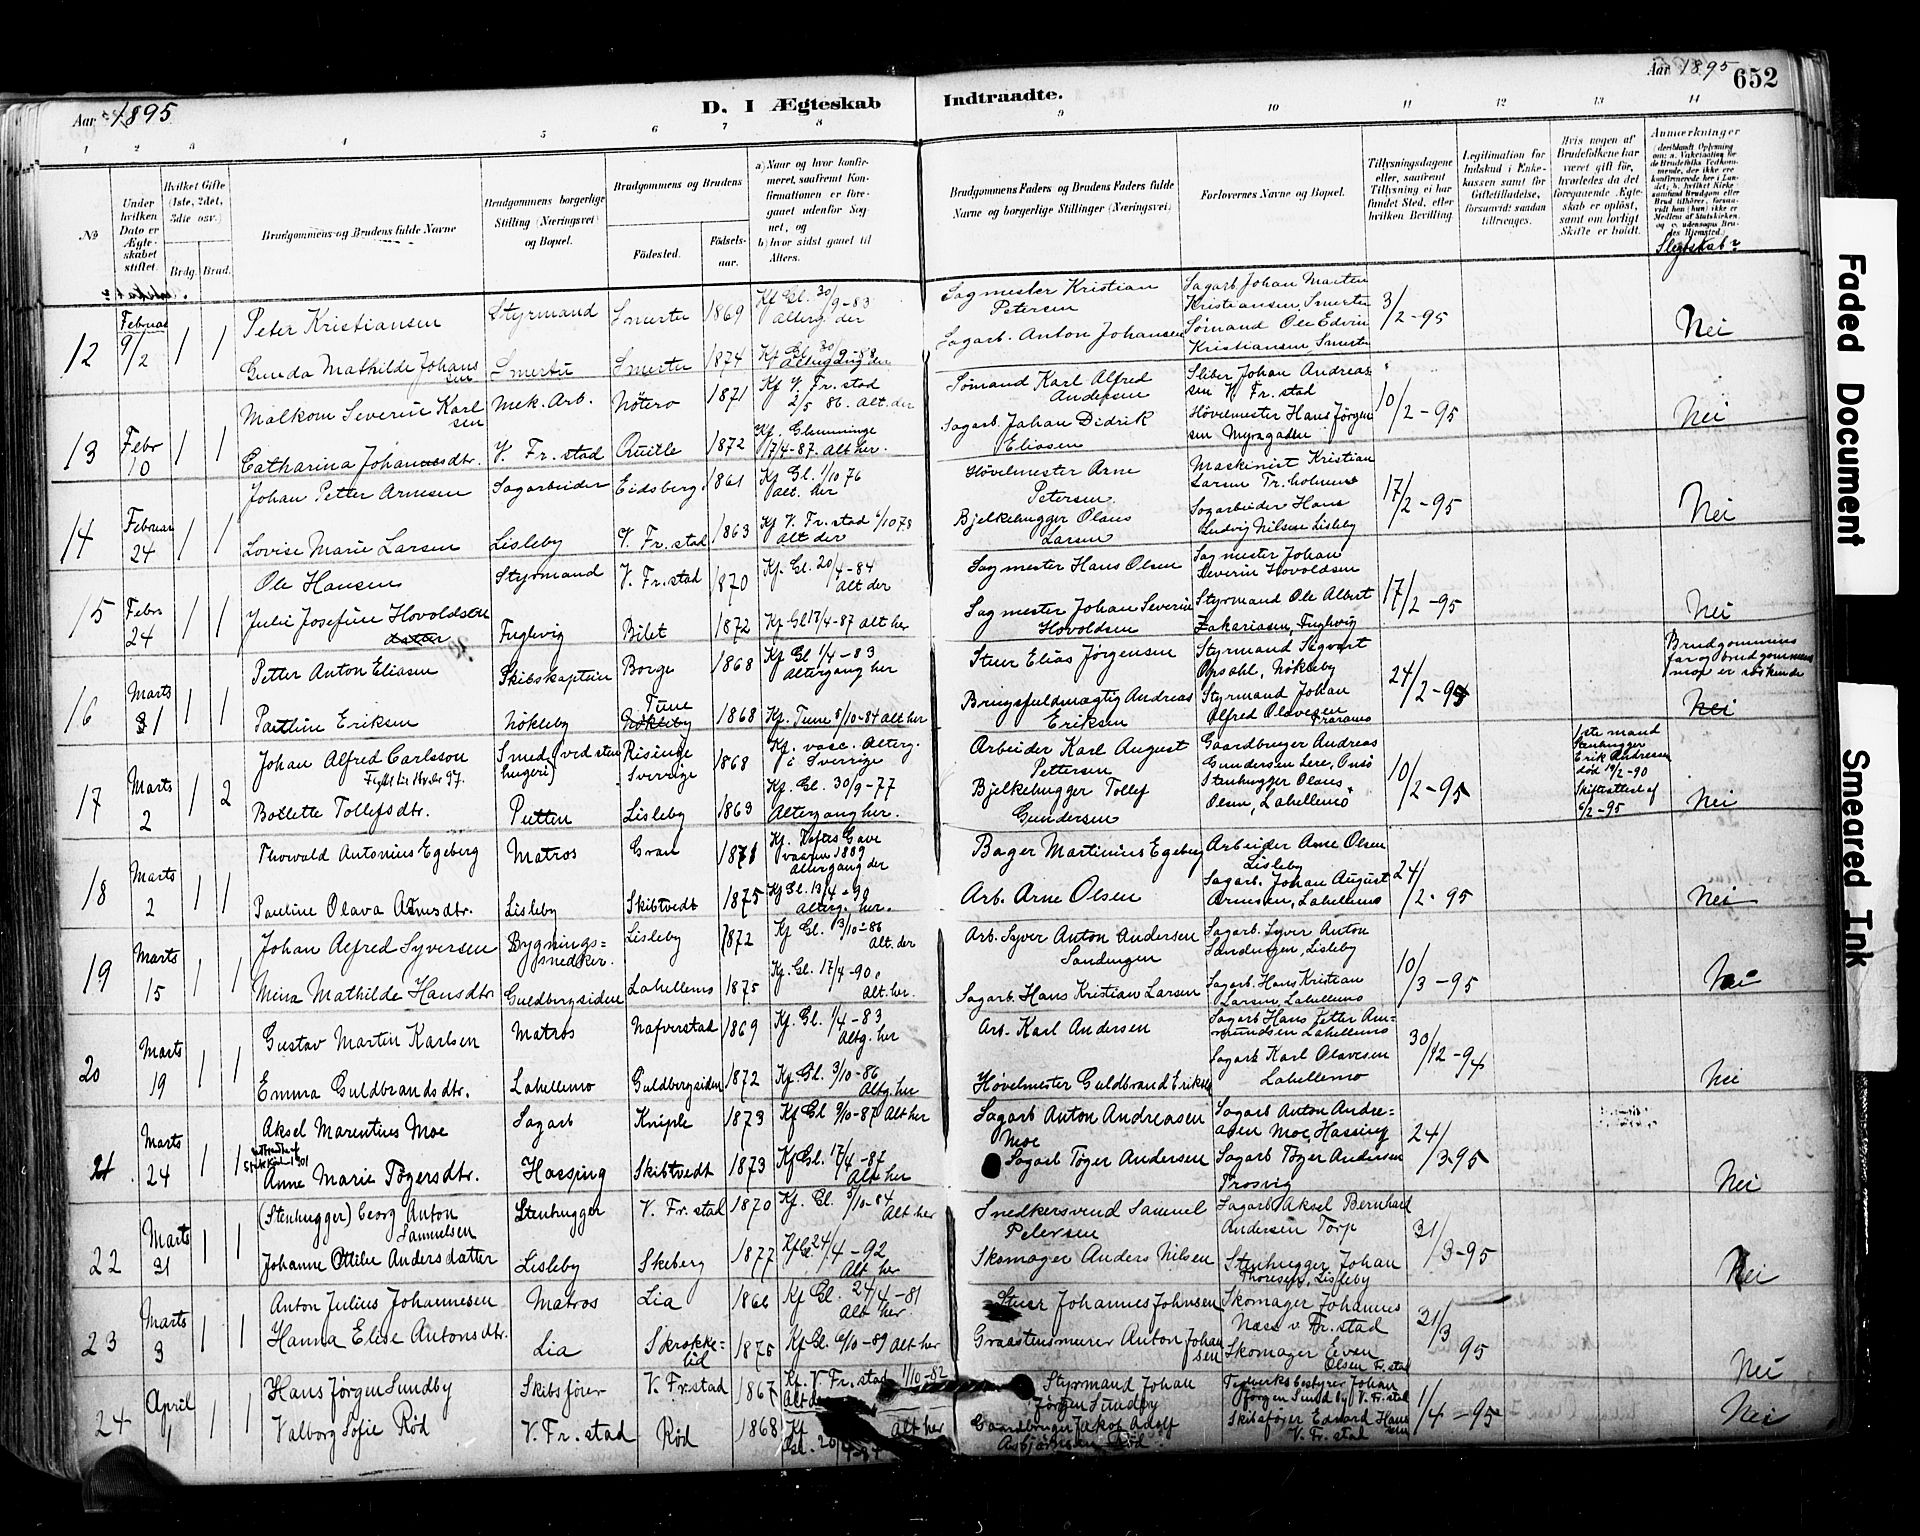 Aar 1895
D. I Ægteskab Indtraadte.
Aar 1895 652
1 2 3 4 5 6 7 8 9 10 11 12 13 14
No
Under hvilken Dato er Ægteskabet stiftet.
Hvilket Gifte (1ste, 2det, 3die osv.)
Brdg. Brud.
Brudgommens og Brudens fulde Navne
Brudgommens borgerlige Stilling (Næringsvei) og Bopæl.
Brudgommens og Brudens
Fødested.
Fødselsaar.
a) Naar og hvor konfirmeret, saafremt Konfirmationen er foregaaet udenfor Sognet, og
b) hvor sidst gaaet til Alters.
Brudgommens Faders og Brudens Faders fulde Navne og borgerlige Stillinger (Næringsvei)
Forlovernes Navne og Bopæl.
Tillysningsdagene eller, saafremt Tillysning ei har fundet Sted, efter hvilken Bevilling.
Legitimation for Indskud i Enkekassen samt for Giftetilladelse, forsaavidt saadan tiltrænges.
Hvis nogen af Brudefolkene har været gift før, hvorledes da det foregaaende Ægteskab er opløst, samt om lovligt Skifte er holdt.
Anmærkninger
Slegtskab?
12 Februar 9/2 1 1 Peter Kristiansen Styrmand Smertu 1869 Kf Gl. 30/9-83 Alterg. der
Sagmester Kristian Petersen
Sagarb. Johan Martin Kristiansen, Smertu 3/2-95 Nei
Gunda Mathilde Johansen Smertu Smertu 1874 Kf Gl. 30/9-88 Altergang der
Sagarb. Anton Johansen
Sømand Ole Edvin Kristiansen, Smertu
13 Febr 10 1 1 Malkom Severin Karlsen Mek. Arb. Nøtero 1871 Kf V. Fr. stad 2/5 86. Alt. der
Sømand Karl Alfred Andersen
Sliber Johan Andreassen V. Fr. stad 10/2-95 Nei
Catharina Johannesdtr. V. Fr. stad 1872 Kf. Glemminge 17/4-87. Alt her.
Sagarb. Johan Didrik Eliasen
Høvelmester Hans Jørgensen
14 Februar 24 1 1 Johan Petter Arnesen Sagarbeider Eidsberg 1861 Kf Gl. 1/10 76 alt. her
Høvelmester Arne Petersen
Maskinist Kristian Larsen Tr. holmene 17/2-95 Nei
Lovise Marie Larsen Lisleby V. Fr. stad 1863 Kf V. Fr. stad 6/10 78 Alt der
Bjelkehugger Olaus Larsen
Sagarbeider Hans Ludvig Nilsen Lisleby
15 Febr 24 1 1 Ole Hansen Styrmand V. Fr. stad 1870 Kf. Gl. 20/4-84 Alt der
Sagmester Hans Olsen
Sagmester Johan Severin Hovoldsen 17/2-95 Nei
Julie Josefine Hovoldsen datter Fuglevig Bilet 1872 Kf Gl 17/4-87 alt her
Sagmester Johan Severin Hovoldsen
Styrmand Ole Albert Zakariasen, Fuglevig
16 Marts 1 1 1 Petter Anton Eliasen Skibskaptein Borge 1868 Kf Gl 1/4-83 Altergang her
Stuer Elias Jørgensen
Styrmand Sigvart Opsahl, Nøkleby 24/2-95
Brudgommens far og brudgommens mor er søskende
Nei
Pauline Eriksen Nøkleby Tune Nøkleby 1868 Kf. Tune 5/10-84 alt her
Brugsfuldmægtig Andreas Eriksen
Styrmand Johan Alfred Olavesen
17 Marts 2 1 2 Johan Alfred Carlsson Smed (ved stenhugeri) Risinge Sverrige 1868 Kf. vasc. Alterg. i Sverrige
Arbeider Karl August Pettersen
Gaardbruger Andreas Gundersen Lere, Onsø 10/2-95
1ste mand Stenhugger Erik Andresen død 19/2-90 Skifteattest af 6/2-95
Nei
Bollette Tollefsdtr. Putten Lisleby 1863 Kf. Gl. 30/9-77 Altergang her.
Bjelkehugger Tollef Gundersen
Stenhugger Olaus Olsen, Lahellemo
18 Marts 2 1 1 Thorvald Antonius Egeberg Matros Gran 1871 1889 Altergang der
Bager Martinius Egeberg
Arbeider Arne Olsen Lisleby 24/2-95 Nei
Pauline Olava Arnesdtr. Lisleby Skibtvedt 1875 Kf Gl. 13/4-90 alterg. her.
Arb. Arne Olsen
Sagarb. Johan August Arnesen, Lahellemo
19 Marts 15 1 1 Johan Alfred Syversen Bygningssnedker. Lisleby 1872 Kf Gl. 3/10-86 Alt. der
Arb. Syver Anton Andersen Sandengen
Sagarb. Syver Anton Sandengen, Lisleby 10/3-95 Nei
Mina Mathilde Hansdtr Guldbergsiden Lahellemo 1875 Kf. Gl. 17/4-90, Alt. her.
Sagarb. Hans Kristian Larsen
Sagarb. Hans Kristian Larsen, Lahellemo
20 Marts 19 1 1 Gustav Martin Karlsen Matros Nafverstad 1869 Kf. Gl. 1/4-83 Altg. her
Arb. Karl Andersen
Sagarb Hans Petter Ammundsen Lahellemo 30/12-94 Nei
Emma Guldbrandsdtr. Lahellemo Guldbergsiden 1872 Kf. Gl. 3/10-86 Altg. her
Høvelmester Guldbrand Eriksen
Sagarb Karl Olavesen Lahellemo
21 Marts 24 1 1 Aksel Marentius Moe Sagarb Kniple 1873 Kf Gl 9/10-87 Alt her
Sagarb Anton Andreasen Moe
Sagarb Anton Andreasen Moe, Hassing 24/3-95 Nei
Anne Marie Tøgersdtr. Hassing Skibtvedt 1873 Kf Gl. 17/4-87 Alt her
Sagarb Tøger Andersen
Sagarb Tøger Andersen Trosvig
22 Marts 31 1 1 (Stenhugger) Georg Anton Samuelsen Stenhugger V. Fr. stad 1870 Kf. Gl. 5/10-84 Alt her
Snedkersvend Samuel Petersen
Sagarb Aksel Bernhard Andersen Torp 31/3-95 Nei
Johanne Ottilie Andersdatter Lisleby Skeberg 1877 Kf Gl 24/4-92 Alt her
Skomager Anders Nilsen
Stenhugger Johan Thoresen, Lisleby
23 Marts 3 1 1 Anton Julius Johannesen Matros Lia 1866 Kf Gl. 24/4-81 Alt her.
Stuer Johannes Johnsen
Skomager Johannes Næss v. Fr. stad 31/3 95 Nei
Hanna Elise Antonsdtr. Lia Skrokkelid 1875 Kf Gl. 6/10-89 alt her
Graastensmurer Anton Johansen
Skomager Even Olsen Fr. stad
24 April 1 1 1 Hans Jørgen Sundby Skibsfører V. Fr. stad 1867 Kf. V. Fr. stad 1/10-82
Styrmand Johan Jørgen Sundby
Teglverksbestyrer Johan Jørgen Sundby V. Fr. stad 1/4-95 Nei
Valborg Sofie Rød V. Fr. stad Rød 1868 Kf Alt her
Gaardbruger Jakob Adolf Asbjørnsen Rød
Skibsfører Edvard Hansen V. Fr. stad
Faded Document
Smeared Ink